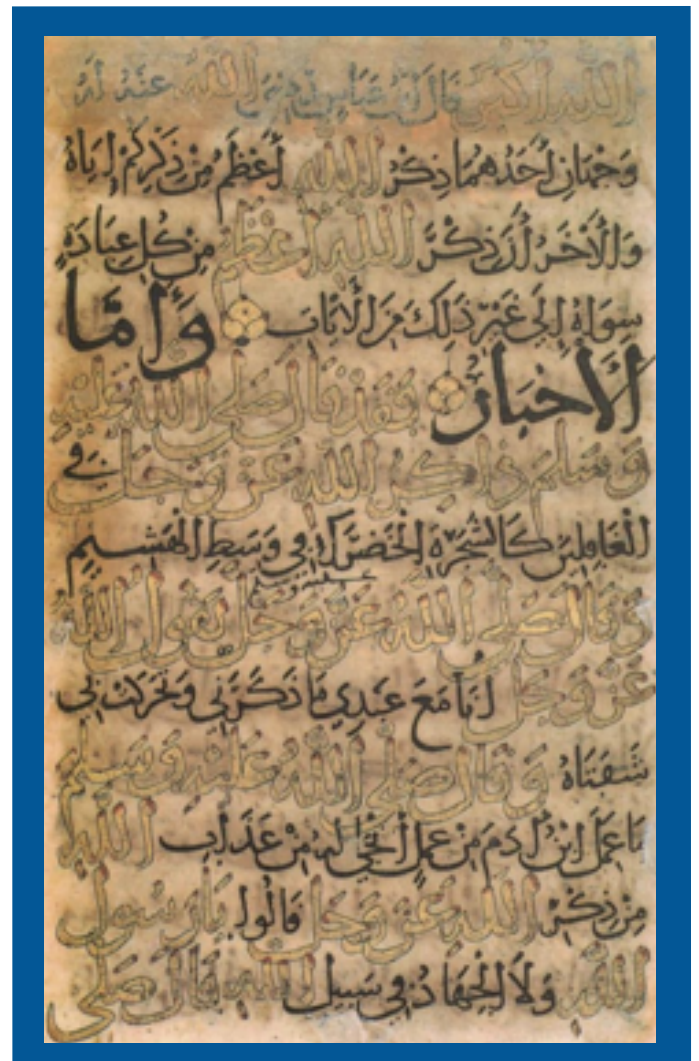 الله أكبر قال ابن عباس رضي الله عنه له
وجهان أحدهما ذكر الله أعظم من ذكركم إياه
والأخر أن ذكر الله أعظم من كل عبادة
سواه إلى غير ذلك من الأيات وأما
الأخبار فقد قال صلى الله عليه
وسلم ذاكر الله عز وجل في
الغافلين كالشجرة الخضراء في وسط الهشيم
وقال صلى الله عليه وسلم عز وجل يقول الله
عز وجل أنا مع عبدي ما ذكرني وتحركت بي
شفتاه وقال صلى الله عليه وسلم
ما عمل ابن أدم من عمل أنجى له من عذاب الله
من ذكر الله عز وجل قالوا يا رسول
الله ولا الجهاد في سبيل الله قال صلى